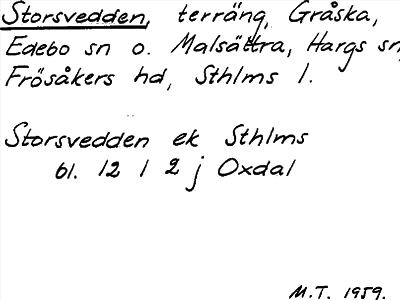 Storsvedden, terräng, Gråska,
Edebo sn o. Malsättra, Hargs sn,
Frösåkers hd, Sthlms l.
Storsvedden ek Sthlms
bl. 12 l 2 j Oxdal
M.T. 1959.